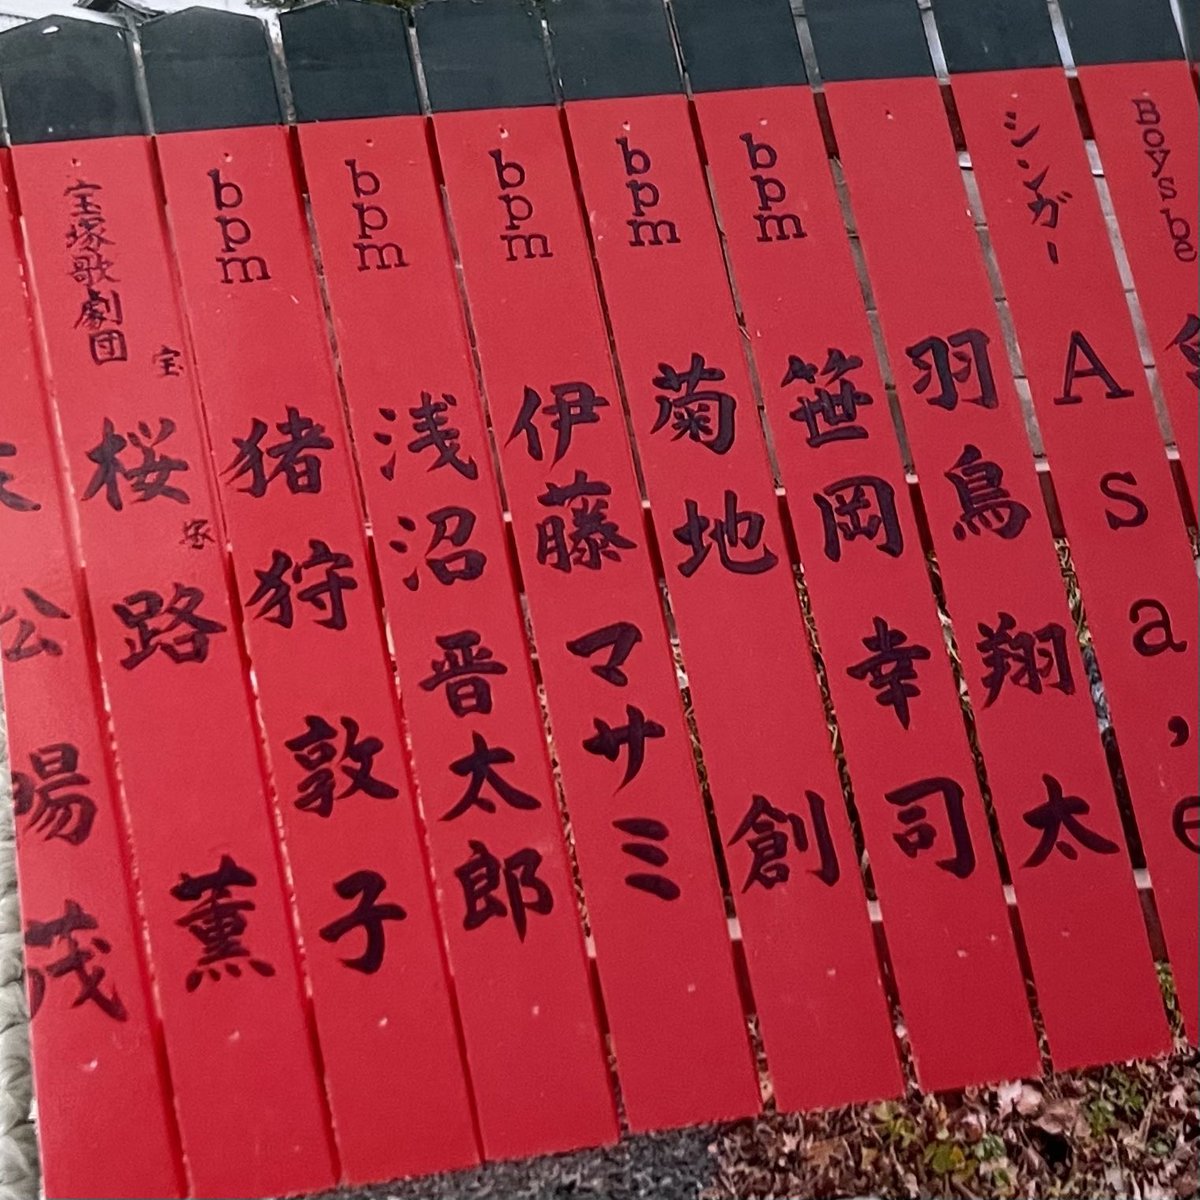 Boys be
シンガー
Asa,e
羽鳥翔太
bpm
笹岡幸司
bpm
菊地創
bpm
伊藤マサミ
bpm
浅沼晋太郎
bpm
猪狩敦子
宝塚歌劇団
宝塚
桜路薫
茂